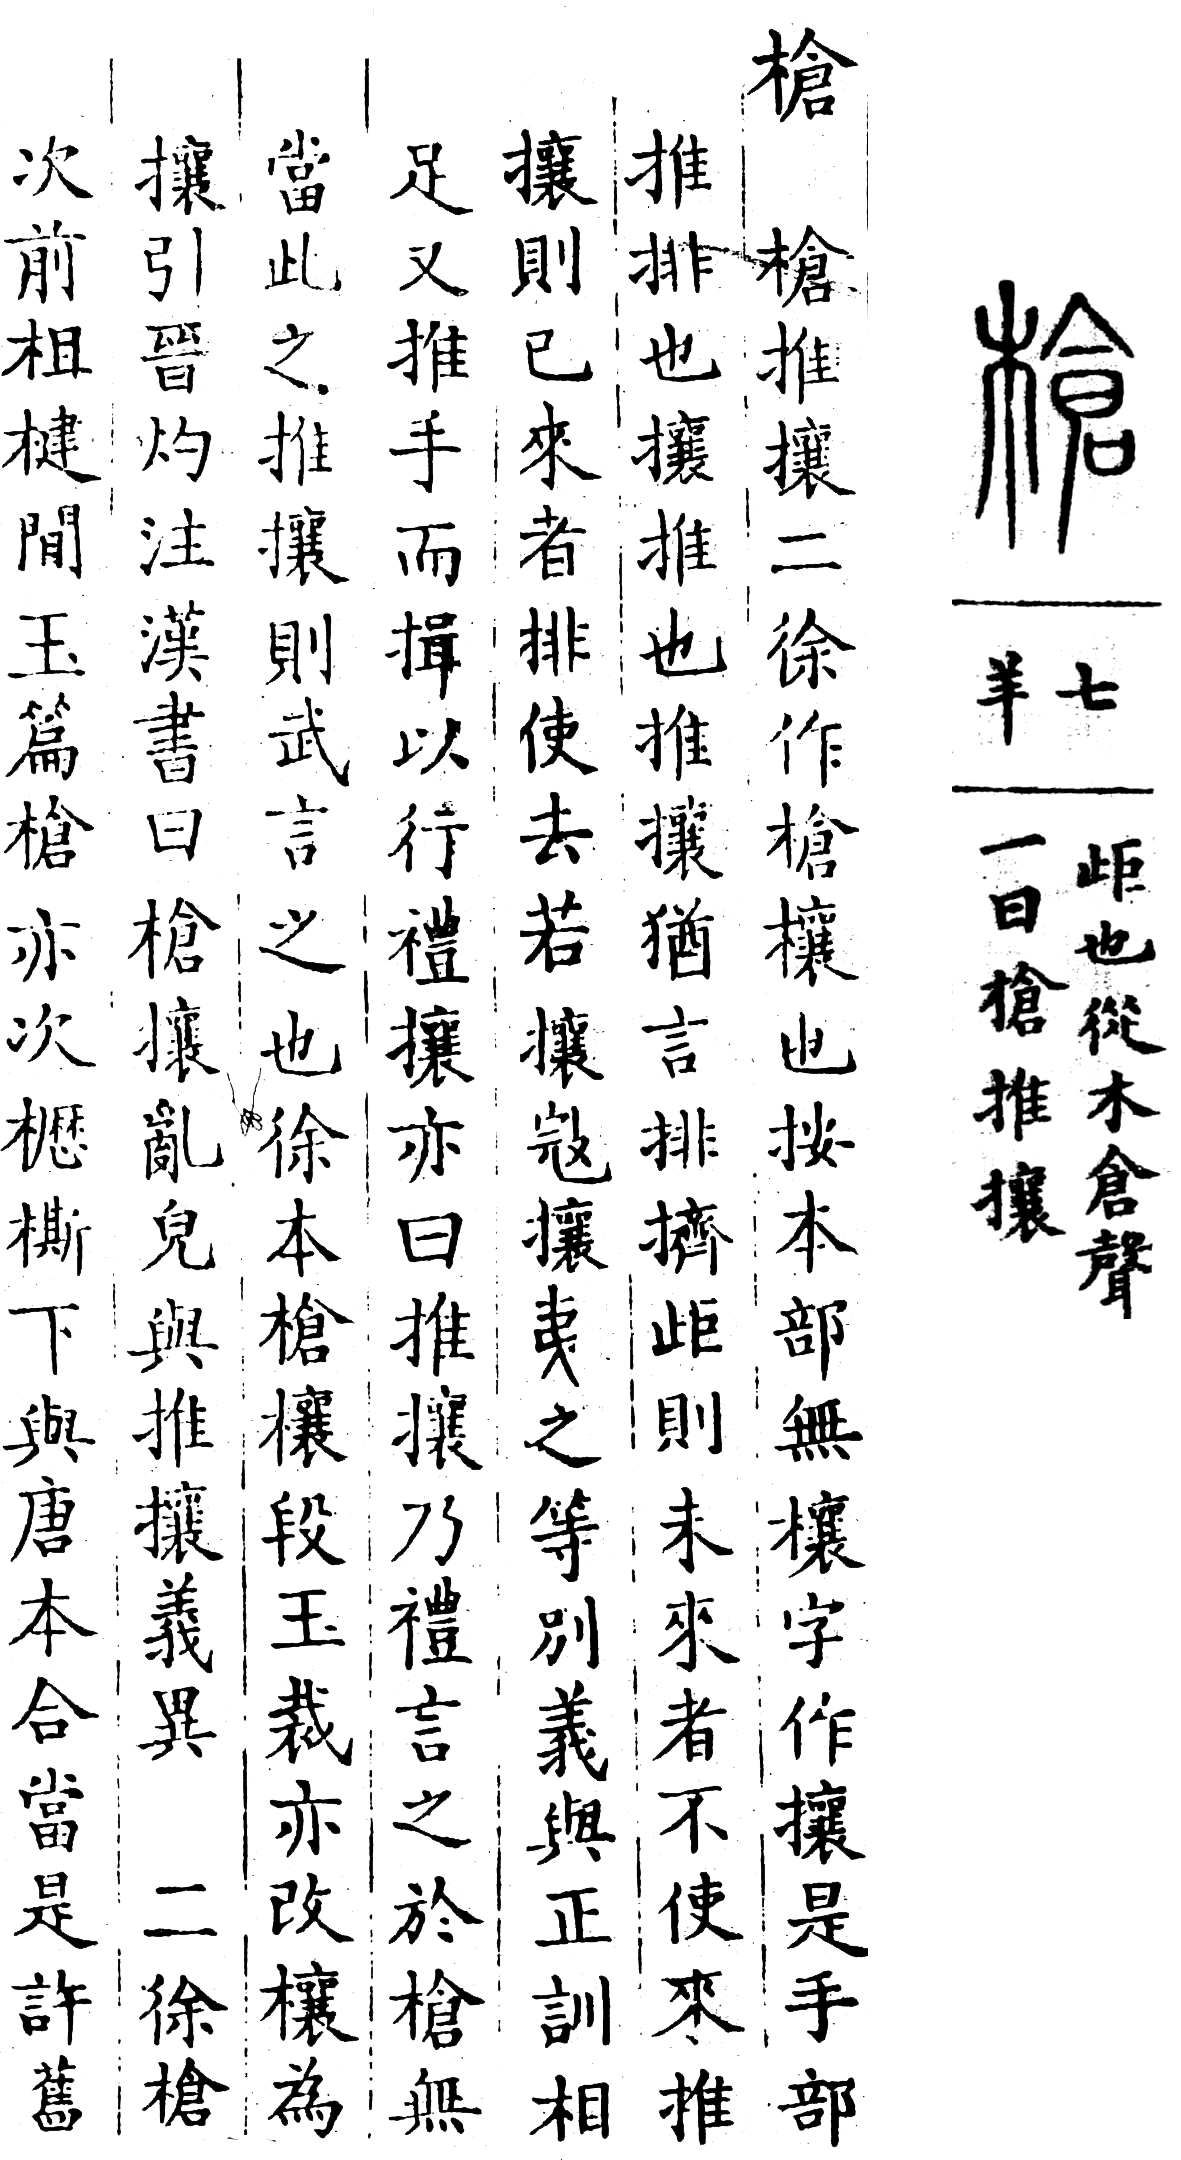 槍
七羊
歫也從木倉聲
一曰槍推攘
槍　槍推攘二徐作槍欀也按本部無欀字作攘是手部
推排也攘推也推攘猶言排擠歫則未來者不使來推
攘則已來者排使去若攘寇攘夷之等別義與正訓相
足又推手而揖以行禮攘亦曰推攘乃禮言之於槍無
當此之推攘則武言之也徐本槍欀段玉裁亦改欀為
攘引晉灼注漢書曰槍攘亂皃與推攘義異　二徐槍
次前柤楗閒玉篇槍亦次櫪㯕下與唐本合當是許舊